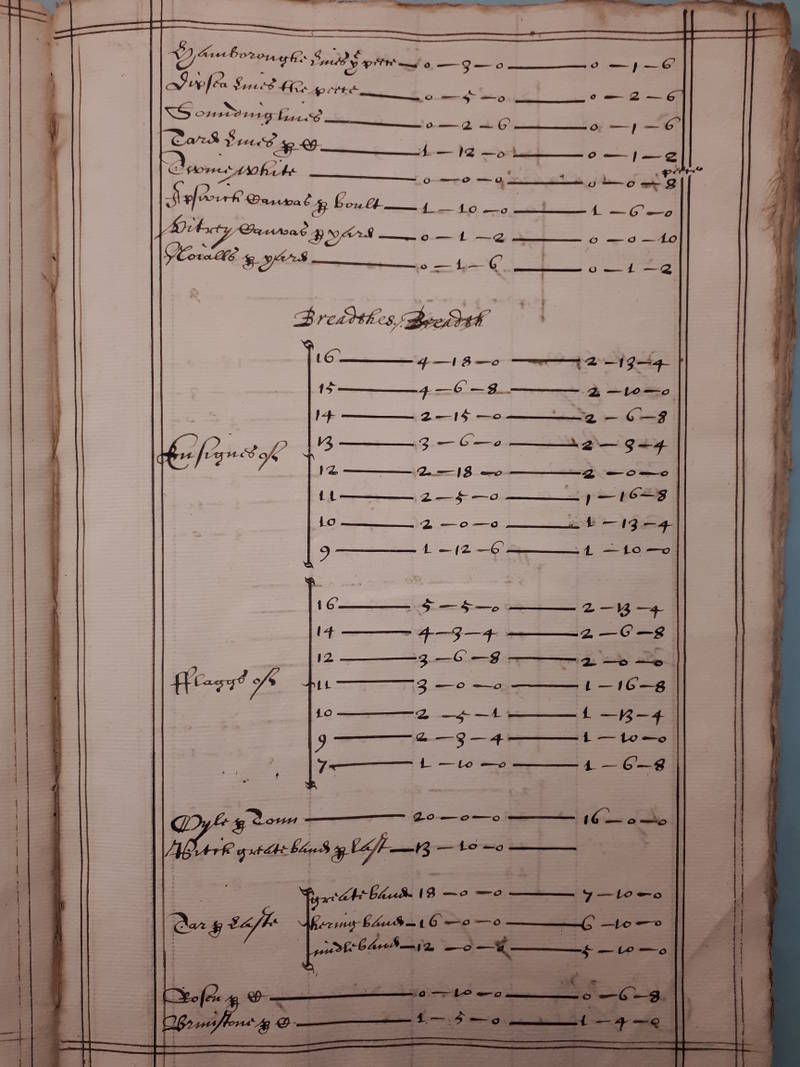 Hamboroughe Lines ye peece — 0 — 3 — 0 — 0 — 1 — 6
Dipsea Lines the peece — 0 — 5 — 0 — 0 — 2 — 6
Soundinglines — 0 — 2 — 6 — 0 — 1 — 6
Tard Lines p C — 1 — 12 — 0 — 0 — 1 — 2
Twine white — 0 — 0 — 0 — 0 — 0 — 8
Ipswich Canvas p boult — 1 — 10 — 0 — 1 — 6 — 0
Vitrey Canvas p yard — 0 — 1 — 2 — 0 — 0 — 10
Noialls p yard — 0 — 1 — 6 — 0 — 1 — 2
Breadthes, Breadth
16 — 4 — 18 — 0 — 2 — 13 — 4
15 — 4 — 6 — 8 — 2 — 10 — 0
14 — 2 — 15 — 0 — 2 — 6 — 8
Ensignes of 13 — 3 — 6 — 0 — 2 — 3 — 4
12 — 2 — 18 — 0 — 2 — 0 — 0
11 — 2 — 5 — 0 — 1 — 16 — 8
10 — 2 — 0 — 0 — 1 — 13 — 4
9 — 1 — 12 — 6 — 1 — 10 — 0
16 — 5 — 5 — 0 — 2 — 13 — 4
14 — 4 — 3 — 4 — 2 — 6 — 8
12 — 3 — 6 — 8 — 2 — 0 — 0
fflaggs of 11 — 3 — 0 — 0 — 1 — 16 — 8
10 — 2 — 5 — 1 — 1 — 13 — 4
9 — 2 — 3 — 4 — 1 — 10 — 0
7 — 1 — 10 — 0 — 1 — 6 — 8
Oyle p Tonn — 20 — 0 — 0 — 16 — 0 — 0
Pitch greate band p Last — 13 — 10 — 0
greate band 18 — 0 — 0 — 7 — 10 — 0
Tar p Laste hering band — 16 — 0 — 0 — 6 — 10 — 0
midle band — 12 — 0 — 0 — 5 — 10 — 0
Rosen p C — 0 — 10 — 0 — 0 — 6 — 8
Brimstone p C — 1 — 5 — 0 — 1 — 4 — 0